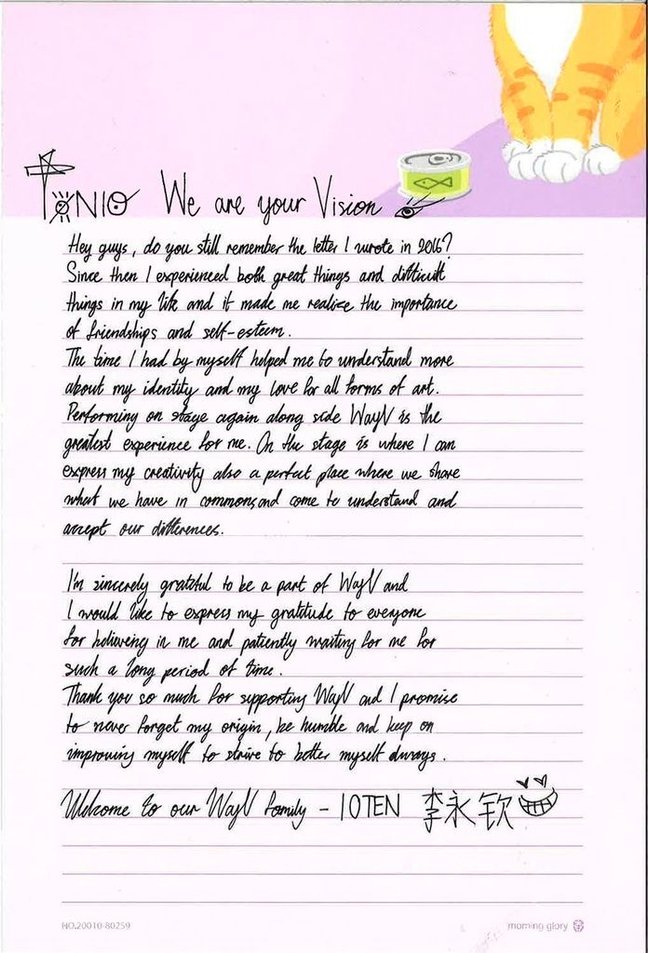 TONIO We are your Vision
Hey guys, do you still remember the letter I wrote in 2016?
Since then I experienced both great things and difficult
things in my life and it made me realize the importance
of friendships and self-esteem.
The time I had by myself helped me to understand more
about my identity and my love for all forms of art.
Performing on stage again along side WayV is the
greatest experience for me. On the stage is where I can
express my creativity also a perfect place where we share
what we have in commons and come to understand and
accept our differences.
I'm sincerely grateful to be a part of WayV and
I would like to express my gratitude to everyone
for believing in me and patiently waiting for me for
such a long period of time.
Thank you so much for supporting WayV and I promise
to never forget my origin, be humble and keep on
improving myself to strive to better myself always.
Welcome to our WayV family - 10TEN 李永钦
NO.20010-80259
morning glory